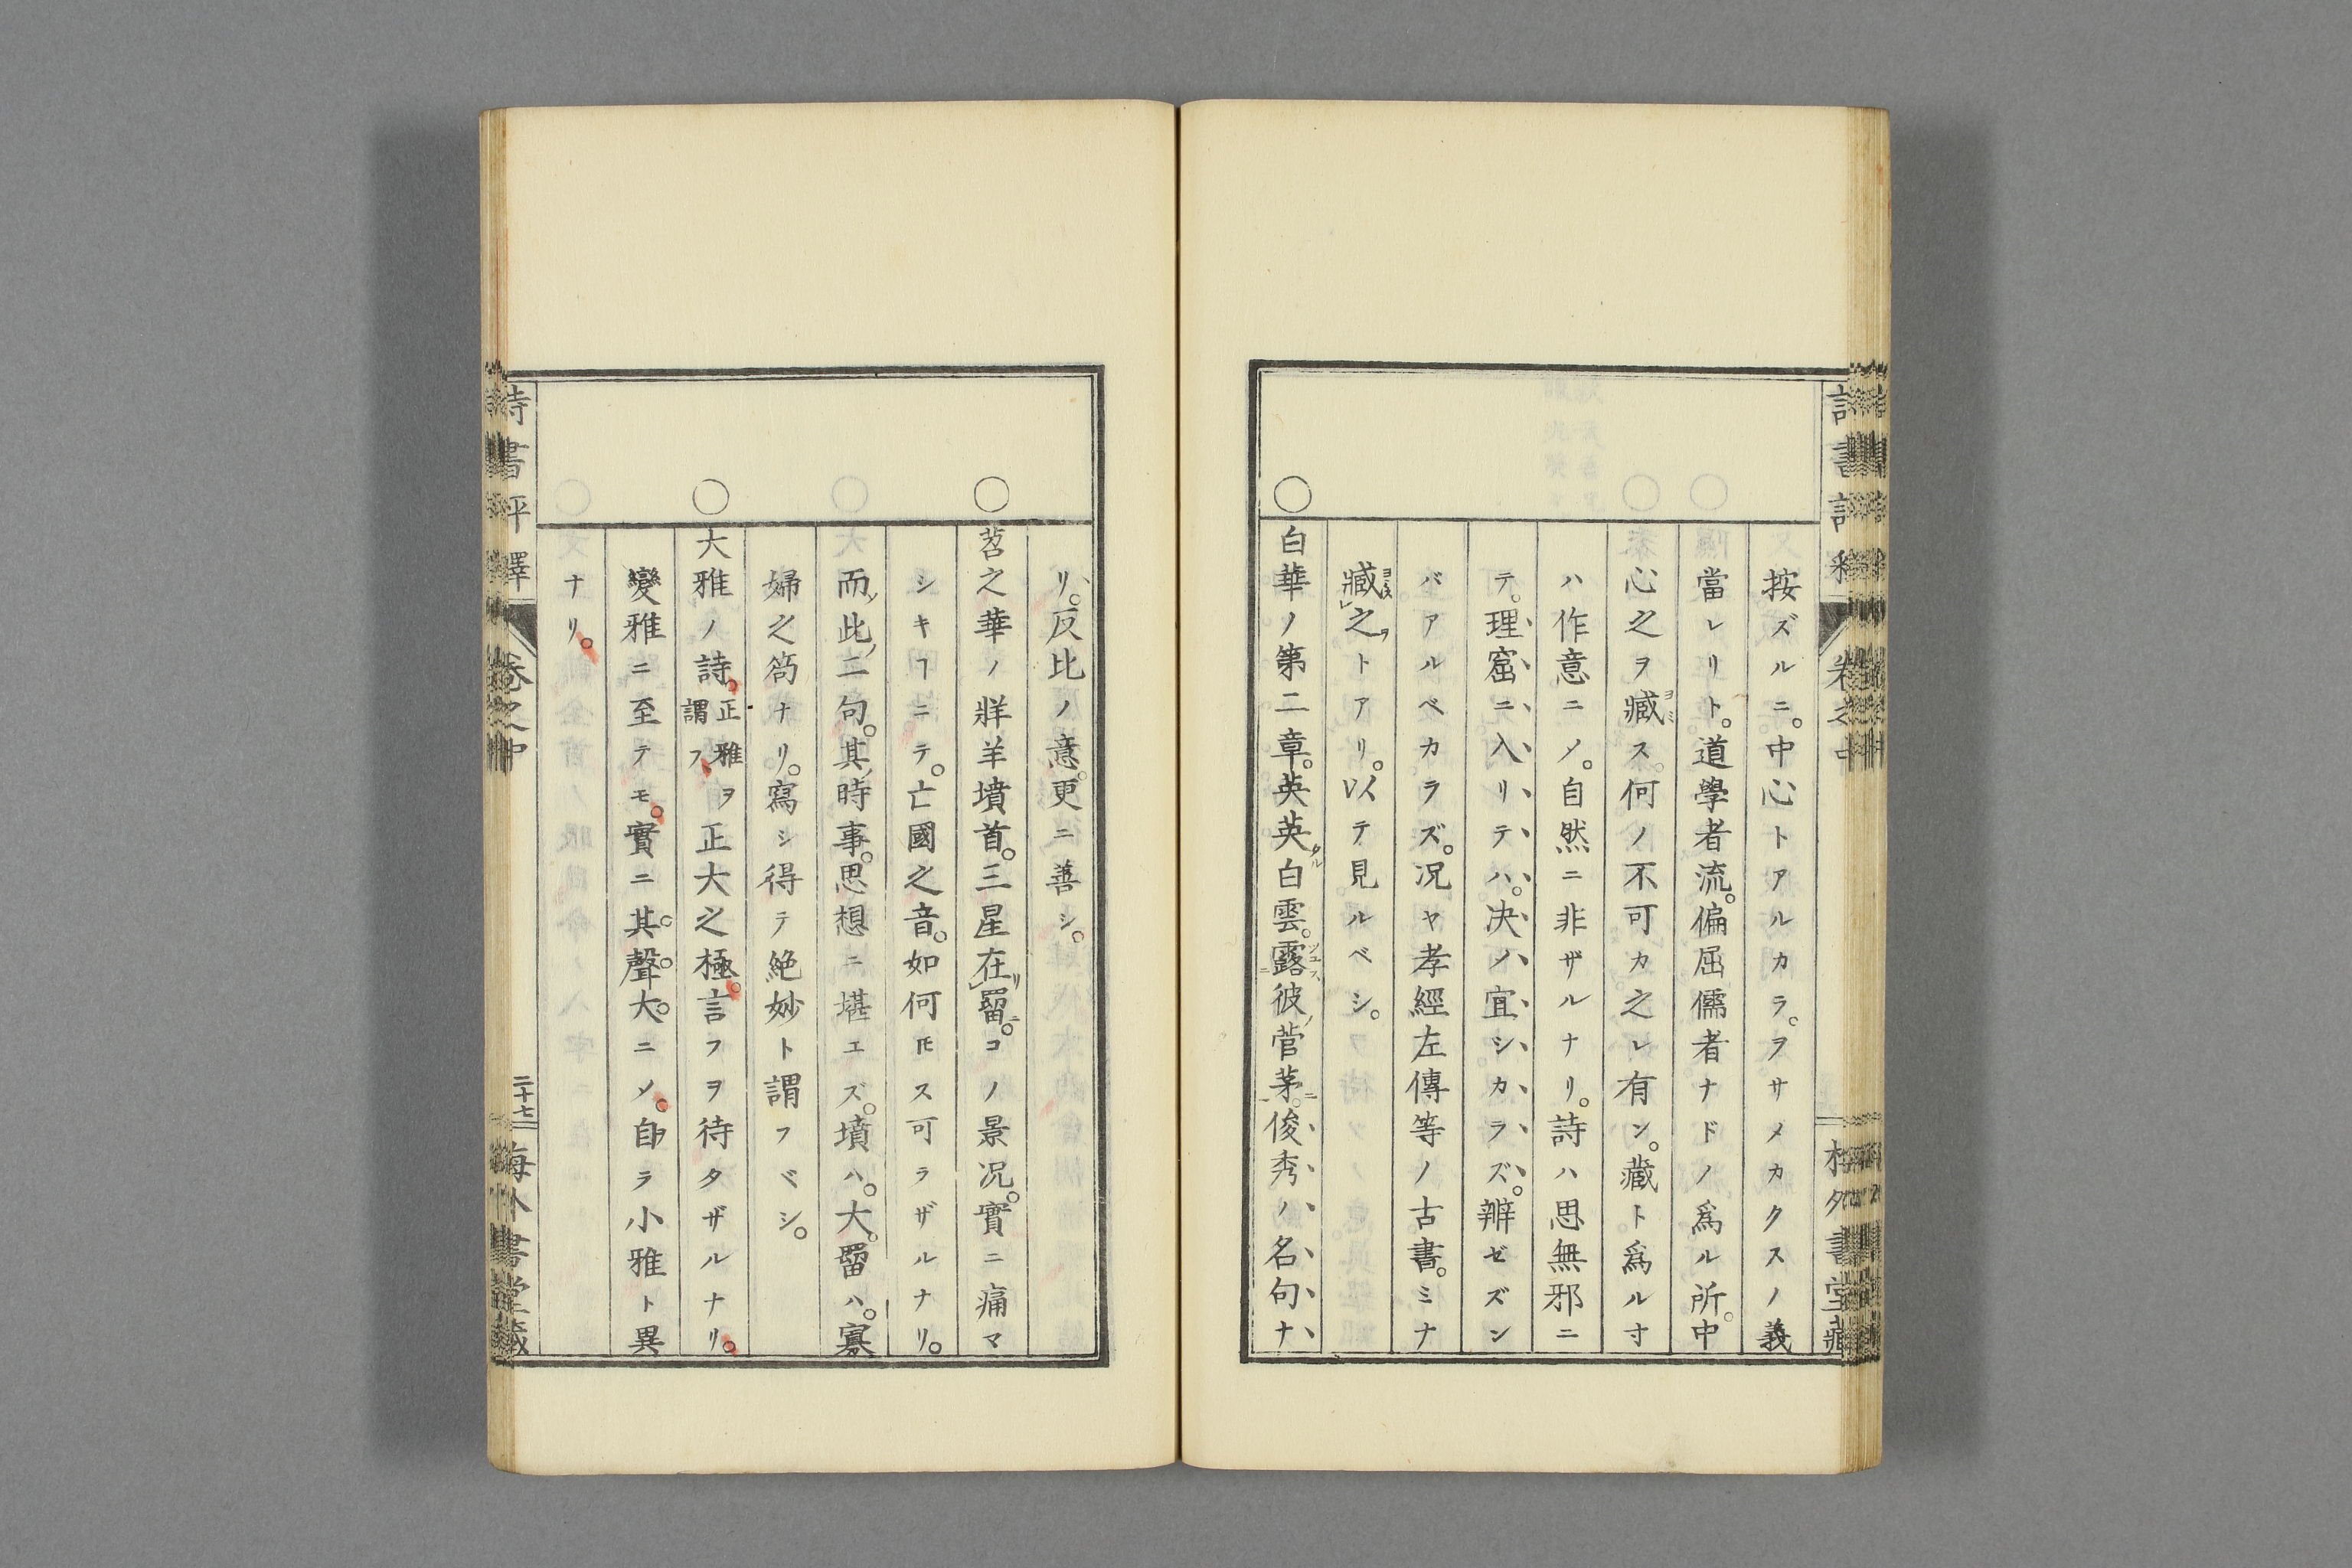 按ズルニ。中心トアルカラ。ヲサメカクスノ義
當レリト。道學者流。偏屈儒者ナドノ爲ル所。中
心之ヲ臧ス。何ノ不可カ之レ有ン。藏ト爲ル寸
ハ作意ニ〆。自然ニ非ザルナリ。詩ハ思無邪ニ
テ。理窟ニ入リテハ。决〆宜シカラズ。辯ゼズン
バアルベカラズ。况ヤ孝經左傳等ノ古書。ミナ
臧之トアリ。以テ見ルベシ。
○白華ノ第二章。英英白雲。露彼菅茅。俊秀ノ名句ナ
リ。反比ノ意。更ニ善シ。
○苕之華ノ牂羊墳首。三星在罶。コノ景况。實ニ痛マ
シキヿニテ。亡國之音。如何𪜈ス可ラザルナリ。
而此二句。其時事。思想ニ堪エズ。墳ハ。大。罶ハ。寡
婦之笱ナリ。寫シ得テ絶妙ト謂フベシ。
○大雅ノ詩。正雅ヲ謂フ正大之極。言フヲ待タザルナリ。
變雅ニ至テモ。實ニ其聲大ニ〆。自ラ小雅ト異
ナリ。
詩書評釋
卷之中
二十七
海外書堂藏